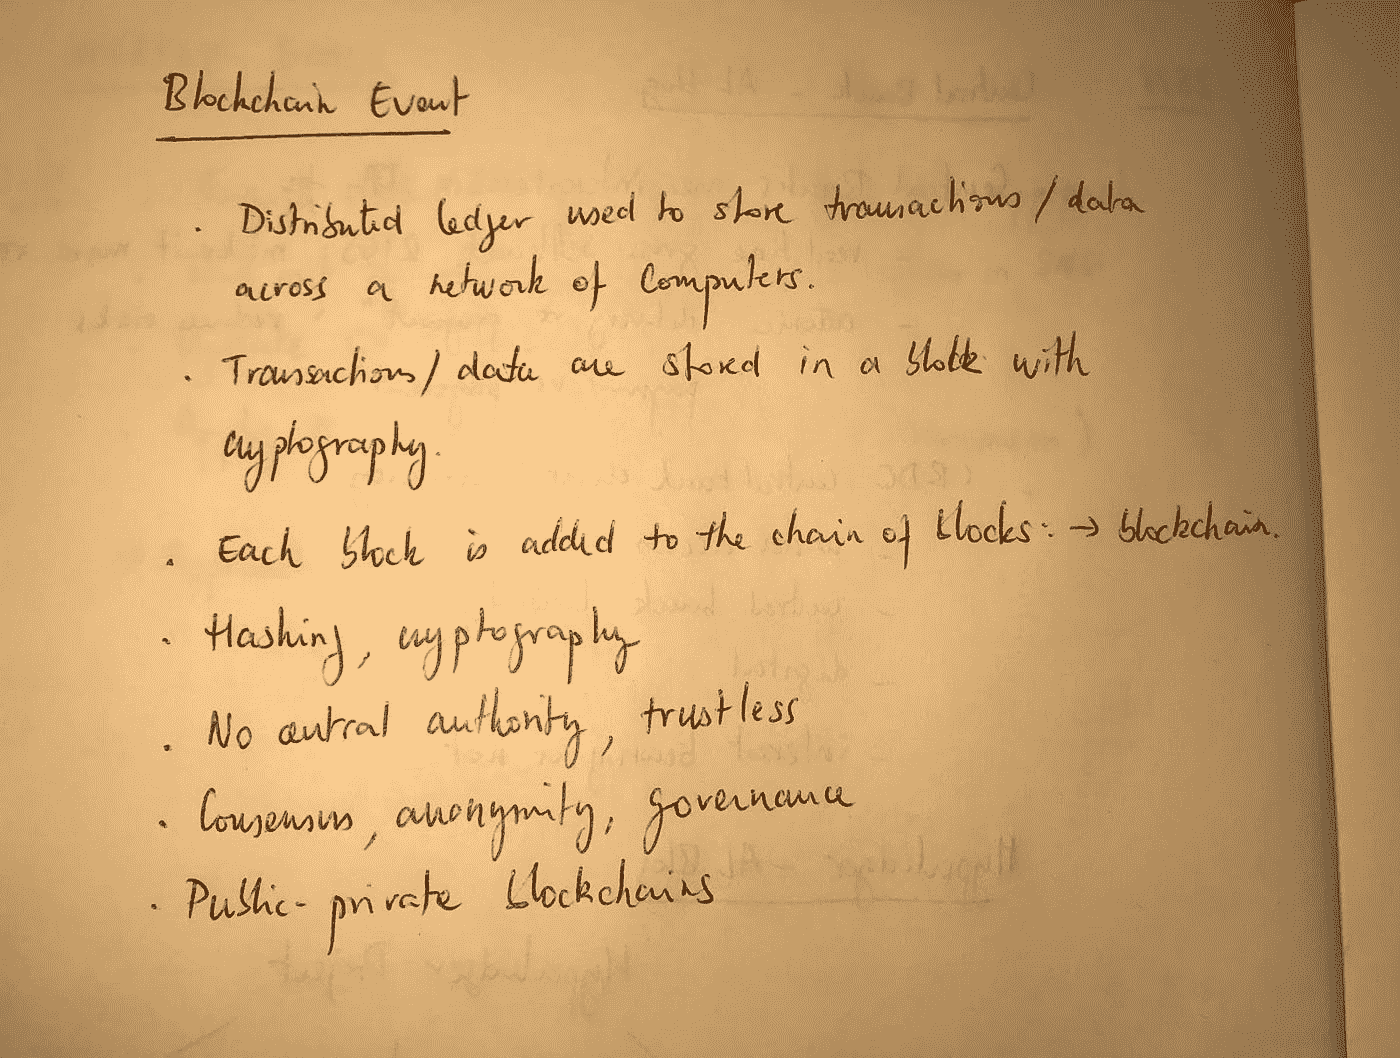 Blockchain Event
. Distributed ledger used to store transactions / data
across a network of Computers.
. Transactions / data are stored in a block with
cryptography.
. Each block is added to the chain of blocks: → blockchain.
. Hashing, cryptography
. No central authority, trustless
. Consensus, anonymity, governance
. Public-private blockchains